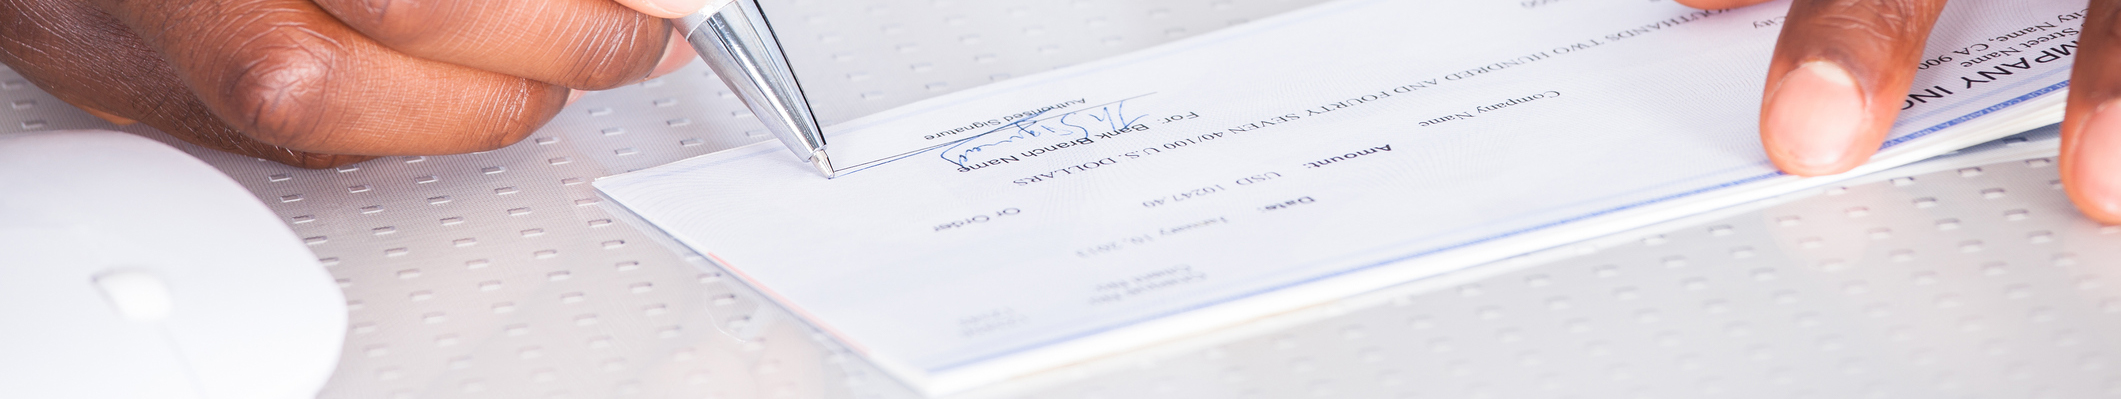 MPANY INC
Street Name
City Name, CA 900
Date:
January 10, 2011
Amount:
USD 10247.40
Company Name
City
OUTHANDS TWO HUNDRED AND FOURTY SEVEN 40/100 U.S. DOLLARS
Or Order
For: Bank Branch Name
Authorised Signature